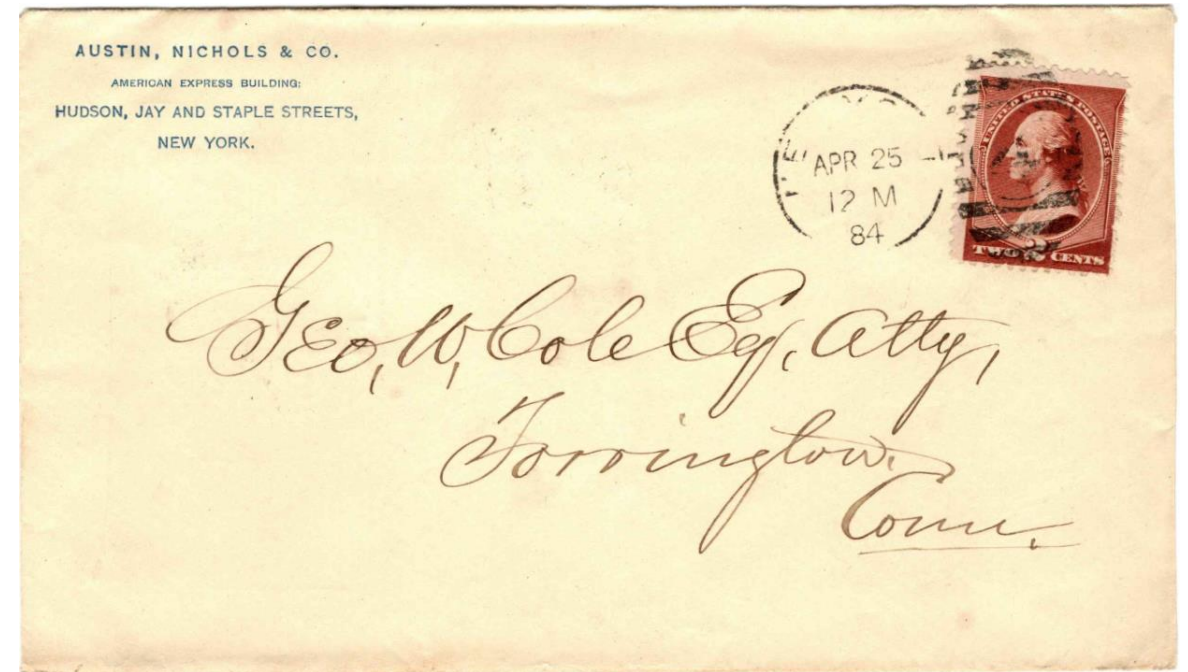 AUSTIN, NICHOLS & CO.
AMERICAN EXPRESS BUILDING:
HUDSON, JAY AND STAPLE STREETS,
NEW YORK.
APR 25
12 M
84
UNITED STATES POSTAGE
2
TWO CENTS
Geo, W, Cole Esq, Atty,
Torrington,
Conn.